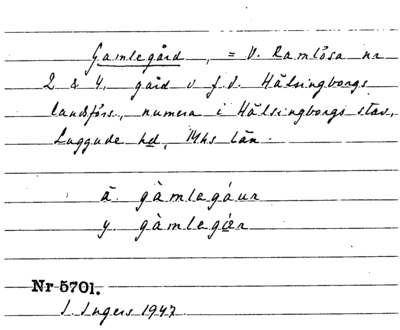 Gamlegård, = V. Ramlösa nr
2 & 4, gård i f.d. Hälsingborgs
landsförs., numera i Hälsingborgs stad,
Luggude hd, Mhs län.
ä. gàmlegáur
y. gàmlegår
Nr 5701.
I. Ingers 1947.